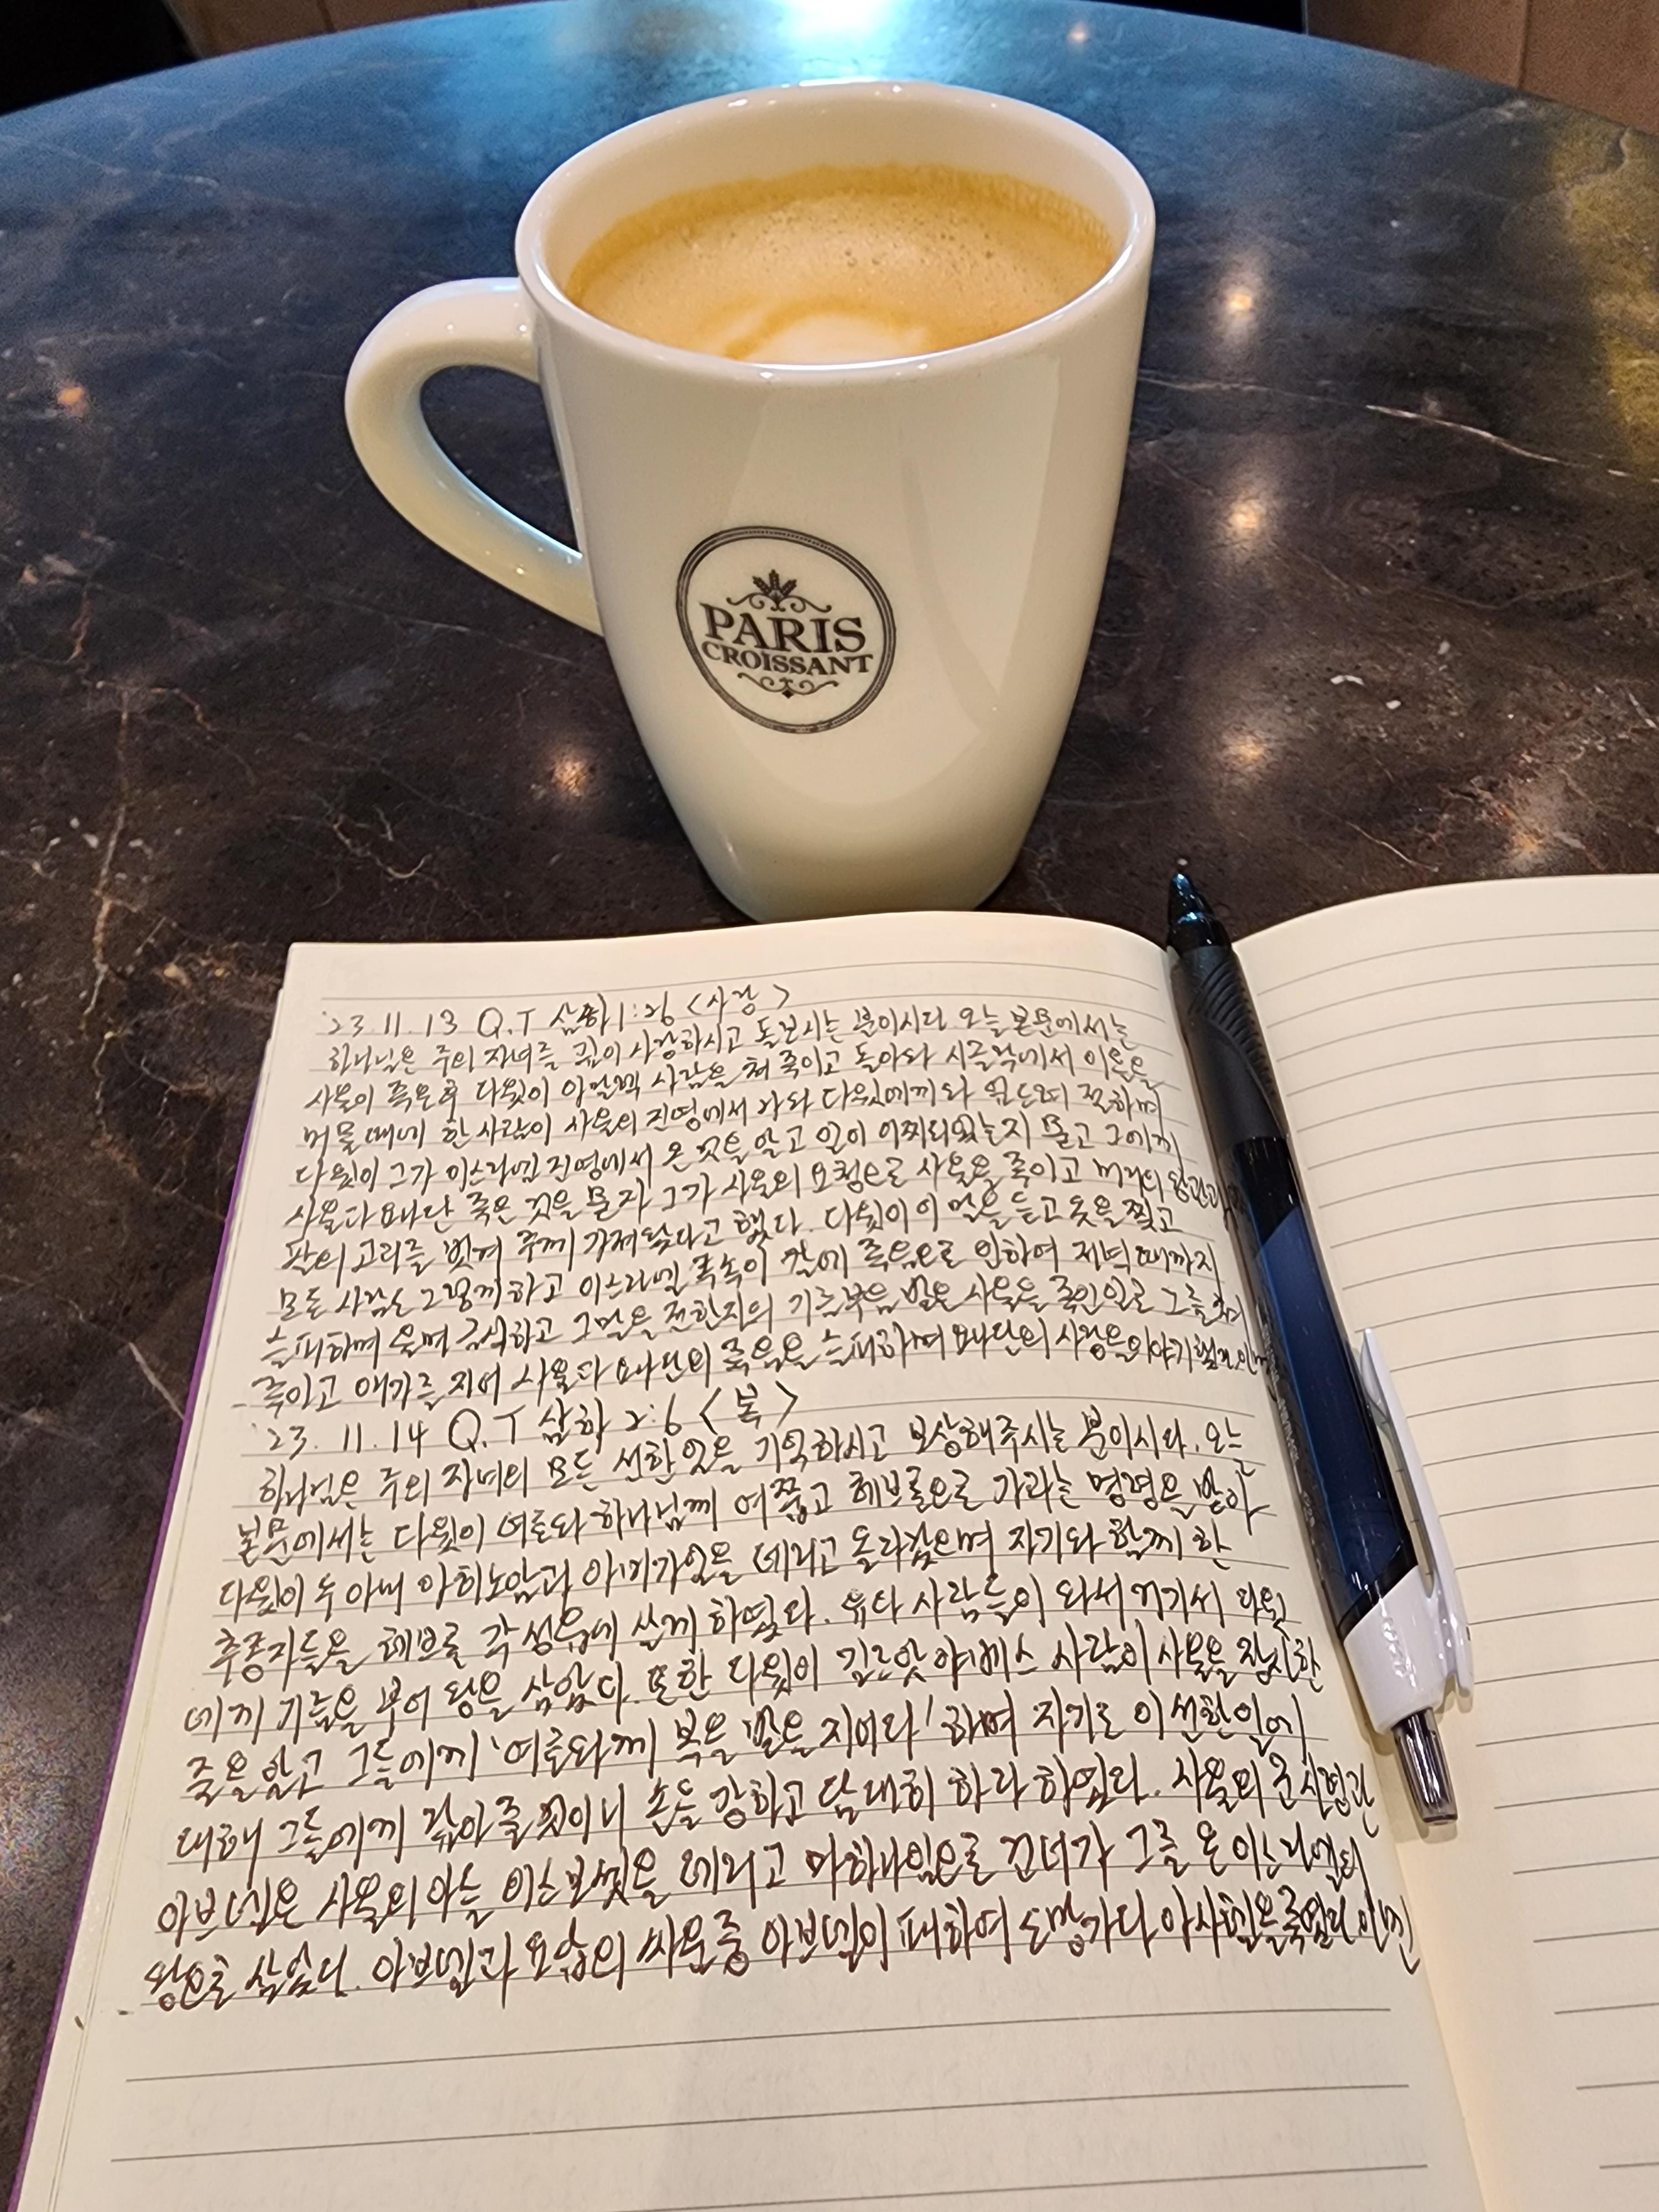 PARIS
CROISSANT
'23.11.13 Q.T 삼하 1:26 <사랑>
하나님은 주의 자녀를 깊이 사랑하시고 돌보시는 분이시다 오늘 본문에서는
사울이 죽은 후 다윗이 아말렉 사람을 쳐 죽이고 돌아와 시글락에서 이틀을
머물 때에 한 사람이 사울의 진영에서 나와 다윗에게 와 엎드려 절하며
다윗이 그가 이스라엘 진영에서 온 것을 알고 일이 어찌되었는지 묻고 그에게
사울과 요나단 죽은 것을 묻자 그가 사울의 요청으로 사울을 죽이고 머리의 왕관과
팔의 고리를 벗겨 주께 가져왔다고 했다. 다윗이 이 말을 듣고 옷을 찢고
모든 사람도 그렇게 하고 이스라엘 족속이 칼에 죽음으로 인하여 저녁 때까지
슬퍼하며 울며 금식하고 그 말을 전한 자의 기름부음 받은 사울을 죽인 일로 그를
죽이고 애가를 지어 사울과 요나단의 죽음을 슬퍼하며 요나단의 사랑을 이야기했다
'23. 11. 14 Q.T 삼하 2:6 <복>
하나님은 주의 자녀의 모든 선한 일을 기억하시고 보상해주시는 분이시다. 오늘
본문에서는 다윗이 여호와 하나님께 여쭙고 헤브론으로 가라는 명령을 받아
다윗이 두 아내 아히노암과 아비가일을 데리고 올라갔으며 자기와 함께 한
추종자들을 헤브론 각 성읍에 살게 하였다. 유다 사람들이 와서 거기서 다윗
에게 기름을 부어 왕을 삼았다. 또한 다윗이 길르앗 야베스 사람이 사울을 장사한
줄을 알고 그들에게 '여호와께 복을 받을 지어다' 하며 자기도 이 선한 일에
대해 그들에게 갚아 줄 것이니 손을 강하고 담대히 하라 하였다. 사울의 군사령관
아브넬은 사울의 아들 이스보셋을 데리고 마하나임으로 건너가 그를 온 이스라엘의
왕으로 삼았다. 아브넬과 요압의 싸움 중 아브넬이 패하여 도망가다 아사헬을 죽였다.